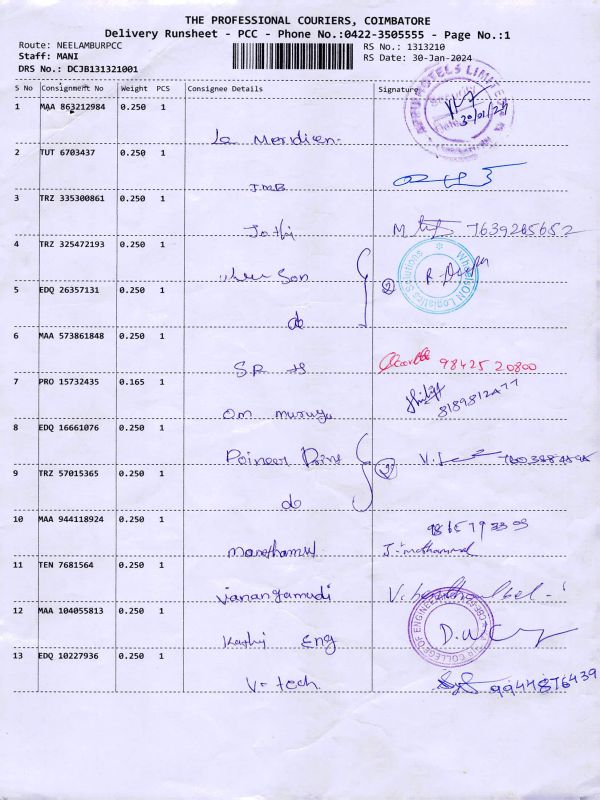 THE PROFESSIONAL COURIERS, COIMBATORE
Delivery Runsheet - PCC - Phone No.:0422-3505555 - Page No.:1
Route: NEELAMBURPCC RS No.: 1313210
Staff: MANI RS Date: 30-Jan-2024
DRS No.: DCJB131321001
S No Consignment No Weight PCS Consignee Details Signature
1 MAA 863212984 0.250 1
APPU HOTELS LIMITED
30/01/24
Le Meridien
2 TUT 6703437 0.250 1
JMB
3 TRZ 335300861 0.250 1
Jothi M 7639265652
4 TRZ 325472193 0.250 1
Son R. Deepa
WheelSON Logistics Solutions
5 EDQ 26357131 0.250 1
do
6 MAA 573861848 0.250 1
SR 98425 20800
7 PRO 15732435 0.165 1
8189812477
Om muruga
8 EDQ 16661076 0.250 1
Poineer
9 TRZ 57015365 0.250 1
do
10 MAA 944118924 0.250 1
98657933 09
11 TEN 7681564 0.250 1
12 MAA 104055813 0.250 1
COLLEGE OF ENGINEERING
Eng
13 EDQ 10227936 0.250 1
V-tech 9944876439